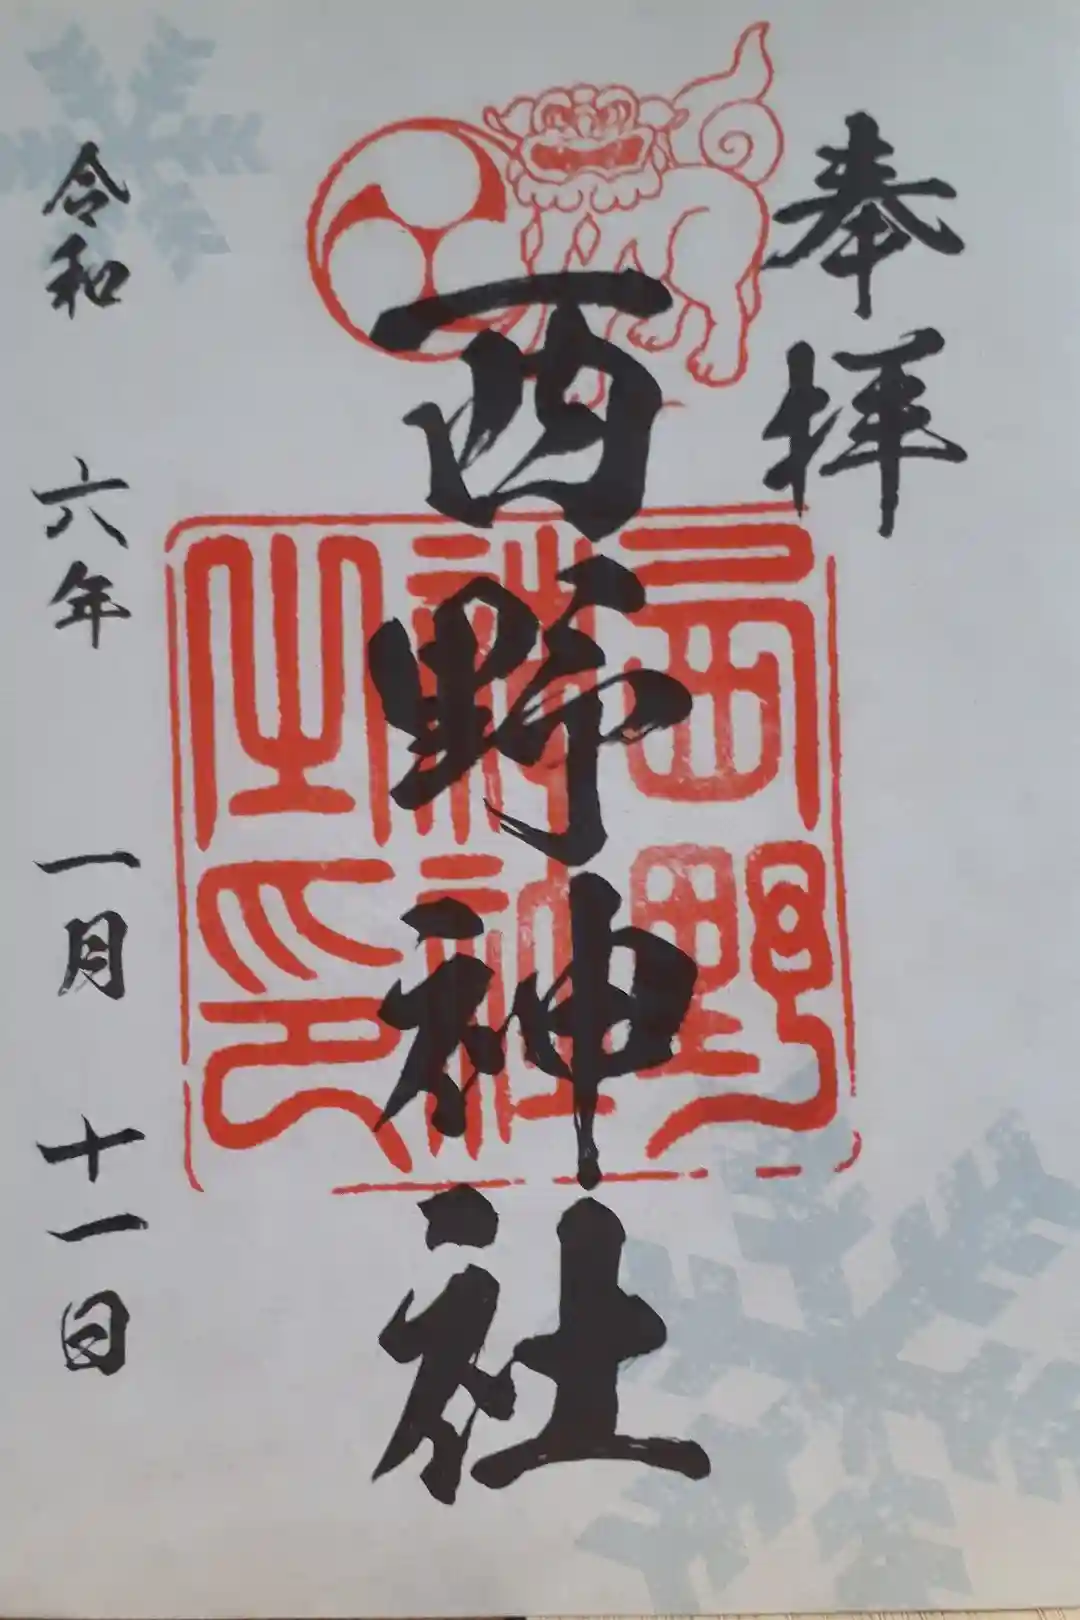 奉拝
西野神社
西野神社之印
令和 六年 一月 十一日